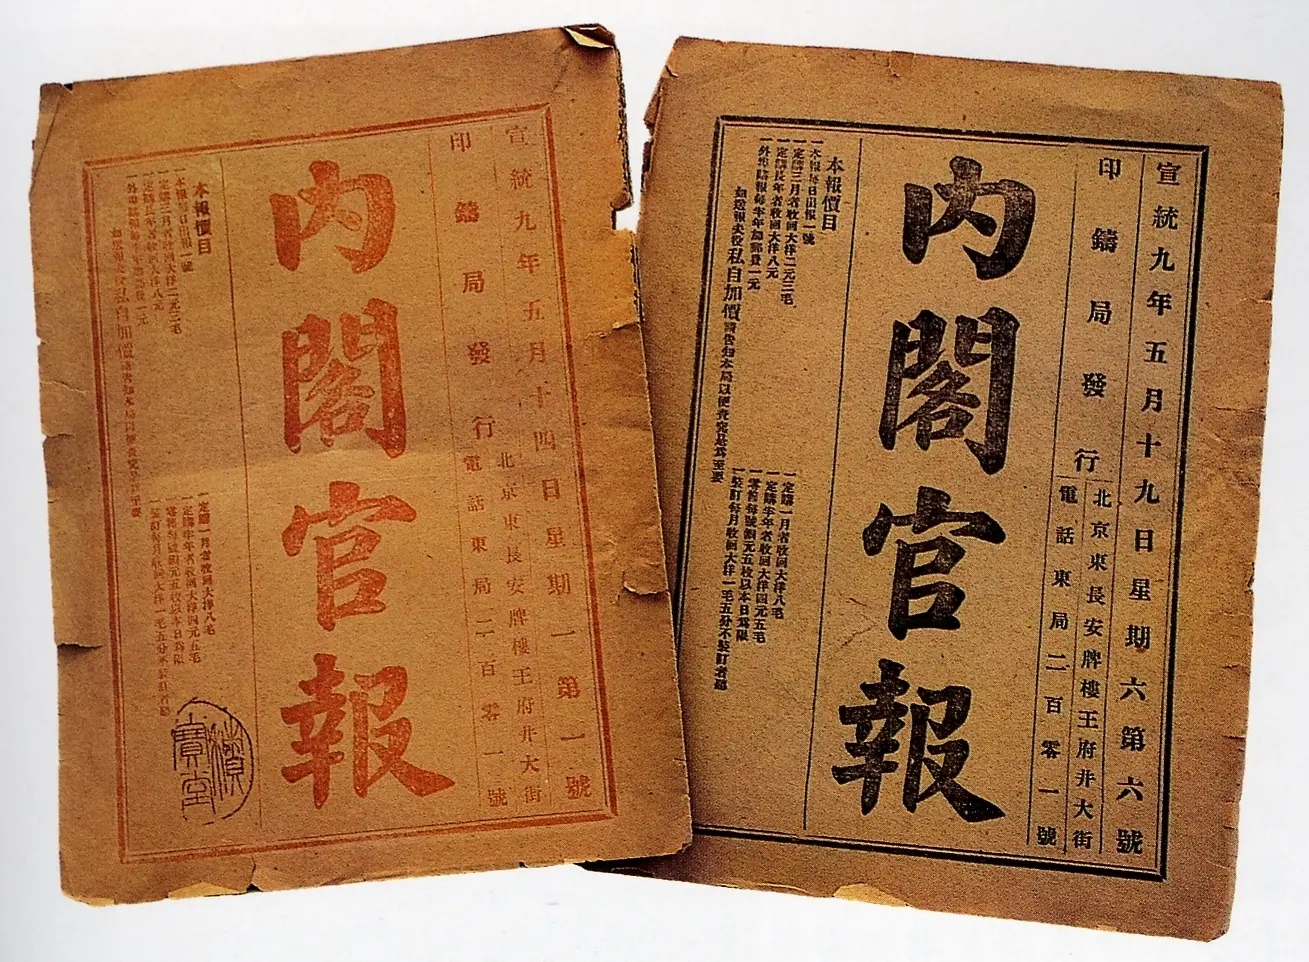 宣統九年五月十四日星期一第一號
印鑄局發行
北京東長安牌樓王府井大街
電話東局二百零一號
內閣官報
本報價目
一本報每日出報一號
一定購三月者收回大洋二元三毛
一定購長年者收回大洋八元
一外埠購報每半年加郵費一元
私自加價
一定購一月者收回大洋八毛
一定購半年者收回大洋四元五毛
一零售每號銅元五枚以本日爲限
一裝訂每月收回大洋一毛五分不裝訂者聽
宣統九年五月十九日星期六第六號
印鑄局發行
北京東長安牌樓王府井大街
電話東局二百零一號
內閣官報
本報價目
一本報每日出報一號
一定購三月者收回大洋二元三毛
一定購長年者收回大洋八元
一外埠購報每半年加郵費一元
如遇報夫役私自加價請告知本局以便查究是爲至要
一定購一月者收回大洋八毛
一定購半年者收回大洋四元五毛
一零售每號銅元五枚以本日爲限
一裝訂每月收回大洋一毛五分不裝訂者聽